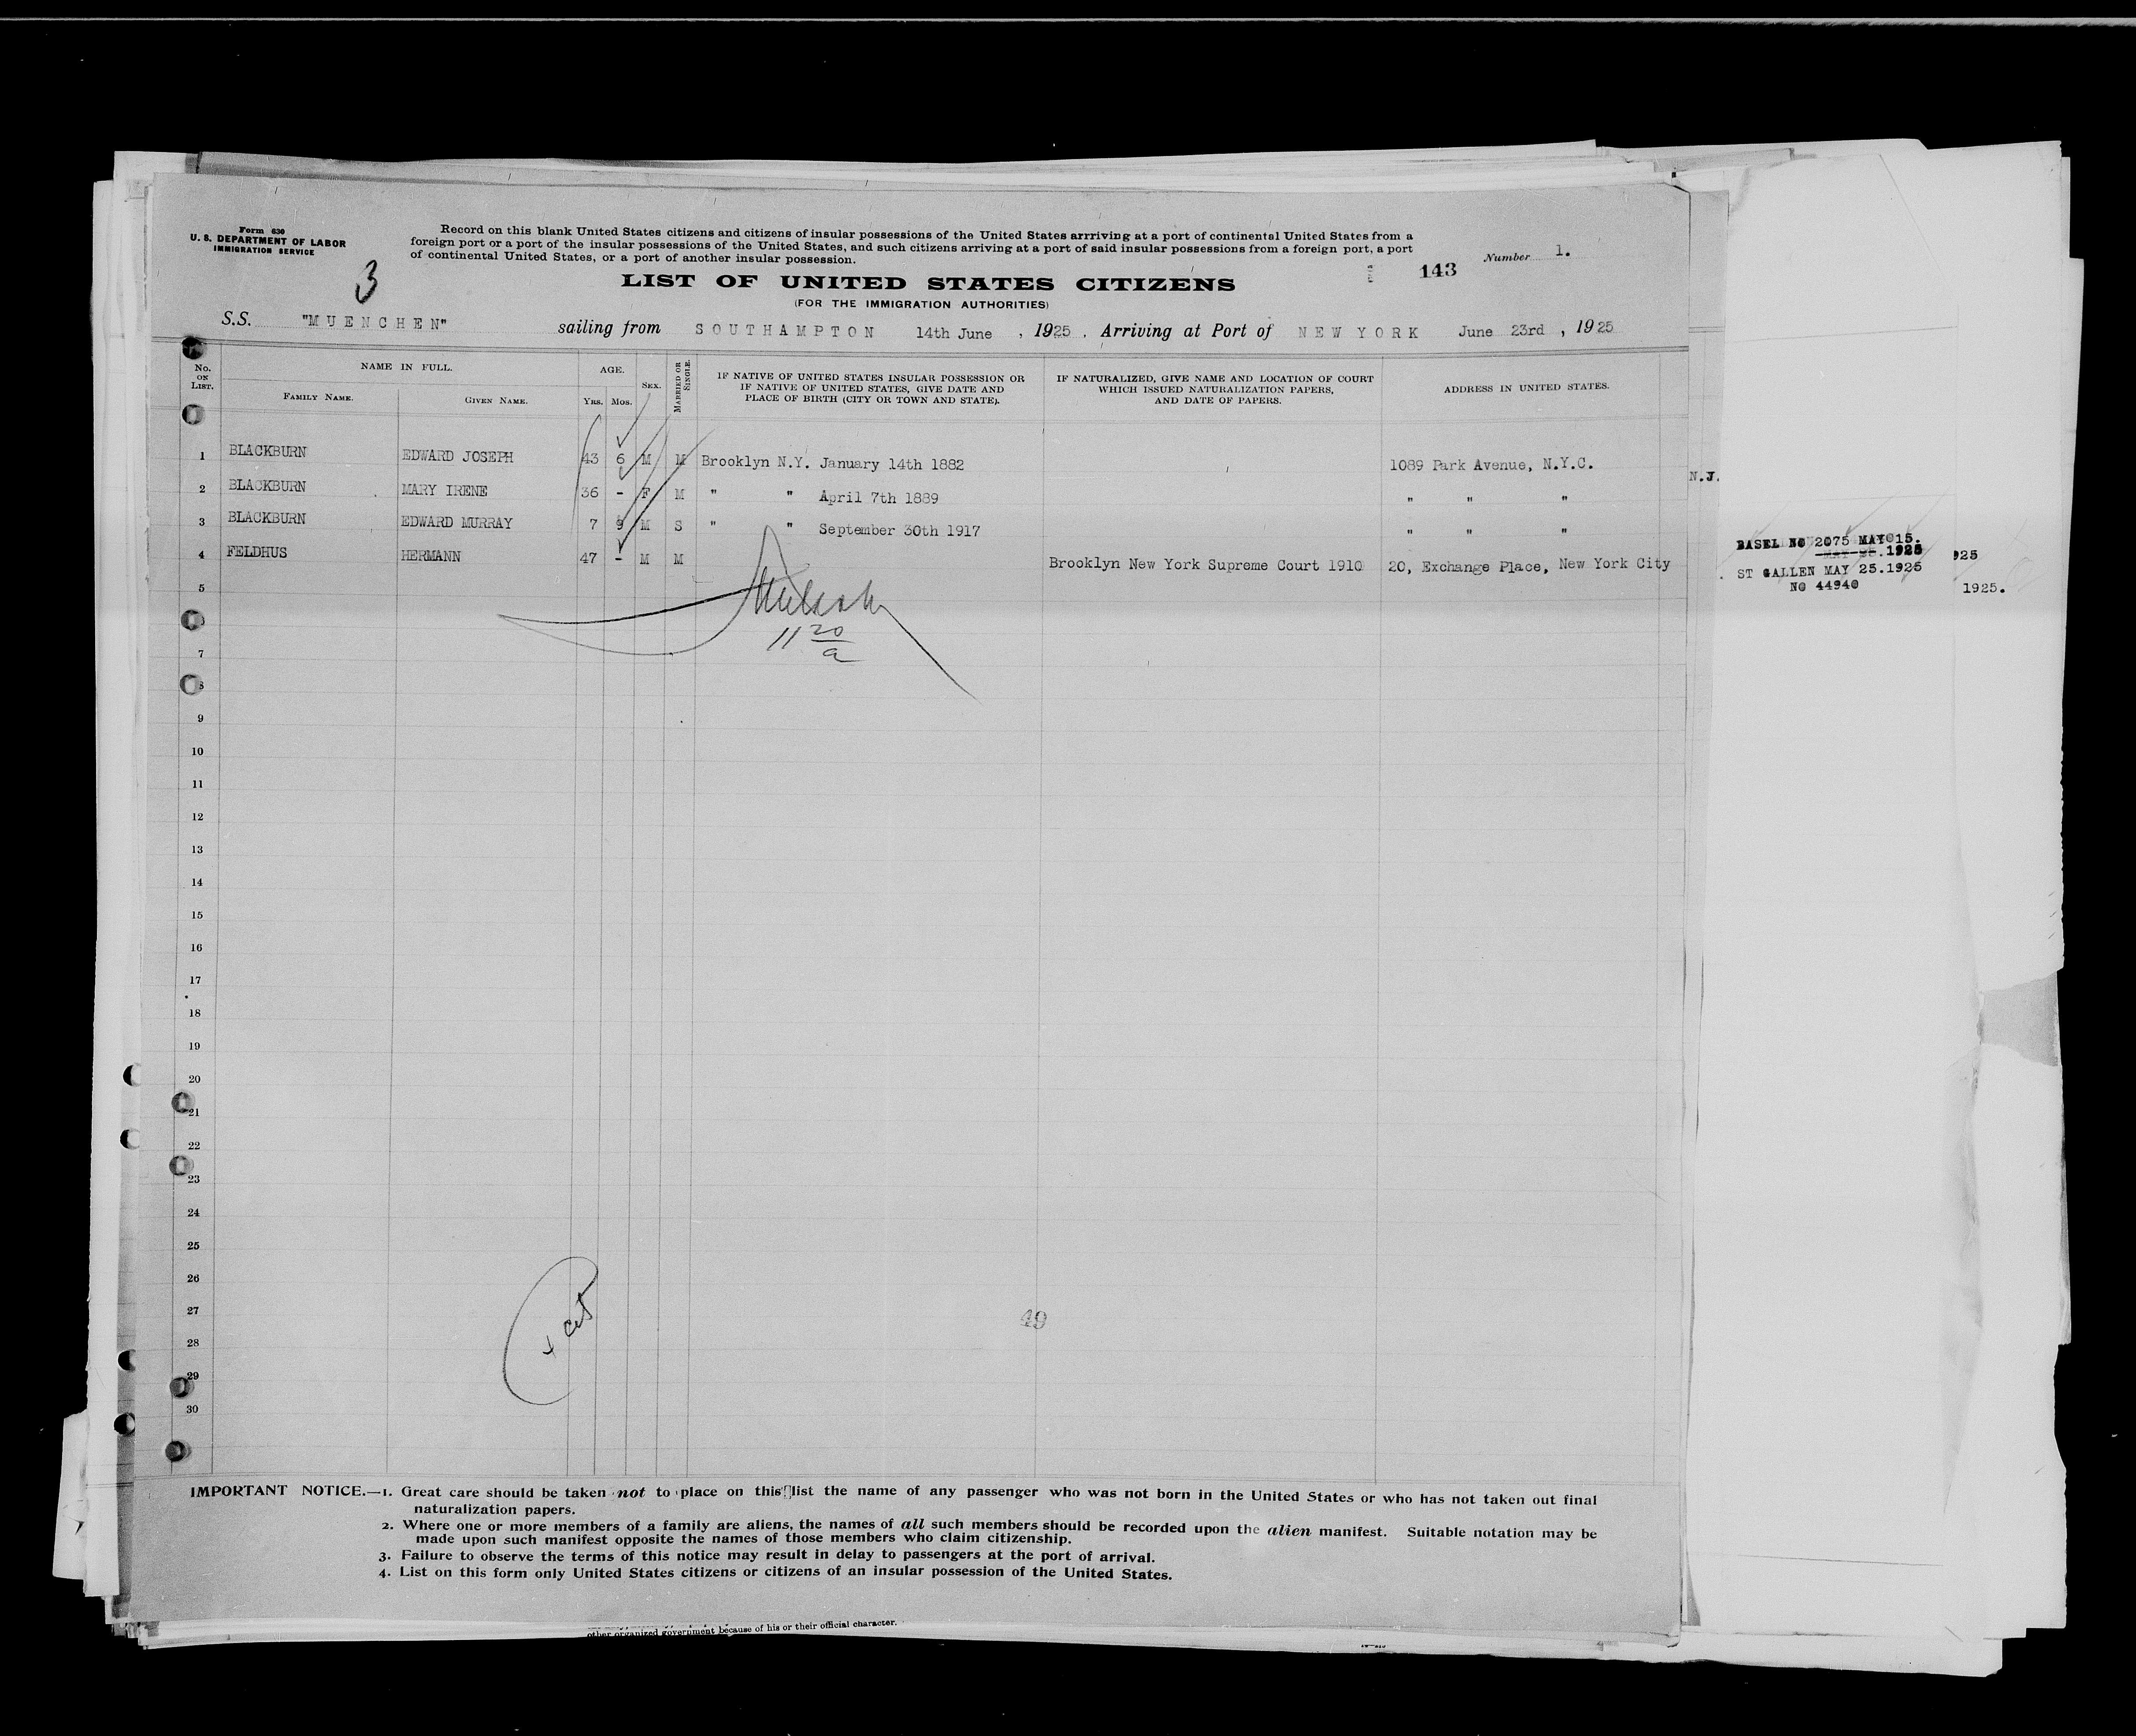 Form 630
U. S. DEPARTMENT OF LABOR
IMMIGRATION SERVICE
Record on this blank United States citizens and citizens of insular possessions of the United States arrriving at a port of continental United States from a
foreign port or a port of the insular possessions of the United States, and such citizens arriving at a port of said insular possessions from a foreign port, a port
of continental United States, or a port of another insular possession.
3
LIST OF UNITED STATES CITIZENS
143
Number 1.
(FOR THE IMMIGRATION AUTHORITIES)
S.S. "MUENCHEN" sailing from SOUTHAMPTON 14th June , 1925 , Arriving at Port of NEW YORK June 23rd , 1925
No. ON LIST.
NAME IN FULL.
FAMILY NAME.
GIVEN NAME.
AGE.
YRS. MOS.
SEX.
MARRIED OR SINGLE.
IF NATIVE OF UNITED STATES INSULAR POSSESSION OR
IF NATIVE OF UNITED STATES, GIVE DATE AND
PLACE OF BIRTH (CITY OR TOWN AND STATE).
IF NATURALIZED, GIVE NAME AND LOCATION OF COURT
WHICH ISSUED NATURALIZATION PAPERS,
AND DATE OF PAPERS.
ADDRESS IN UNITED STATES.
1 BLACKBURN EDWARD JOSEPH 43 6 M M Brooklyn N.Y. January 14th 1882 1089 Park Avenue, N.Y.C.
2 BLACKBURN MARY IRENE 36 - F M " " April 7th 1889 " " "
3 BLACKBURN EDWARD MURRAY 7 9 M S " " September 30th 1917 " " "
4 FELDHUS HERMANN 47 - M M Brooklyn New York Supreme Court 1910 20, Exchange Place, New York City
5
11 20
a
7
8
9
10
11
12
13
14
15
16
17
18
19
20
21
22
23
24
25
26
27
28
29
30
49
N.J.
BASEL NO 2075 MAY 15.
.1925
925
ST GALLEN MAY 25.1925
NO 44940
1925.
IMPORTANT NOTICE.—1. Great care should be taken not to place on this list the name of any passenger who was not born in the United States or who has not taken out final
naturalization papers.
2. Where one or more members of a family are aliens, the names of all such members should be recorded upon the alien manifest. Suitable notation may be
made upon such manifest opposite the names of those members who claim citizenship.
3. Failure to observe the terms of this notice may result in delay to passengers at the port of arrival.
4. List on this form only United States citizens or citizens of an insular possession of the United States.
other organized government because of his or their official character.